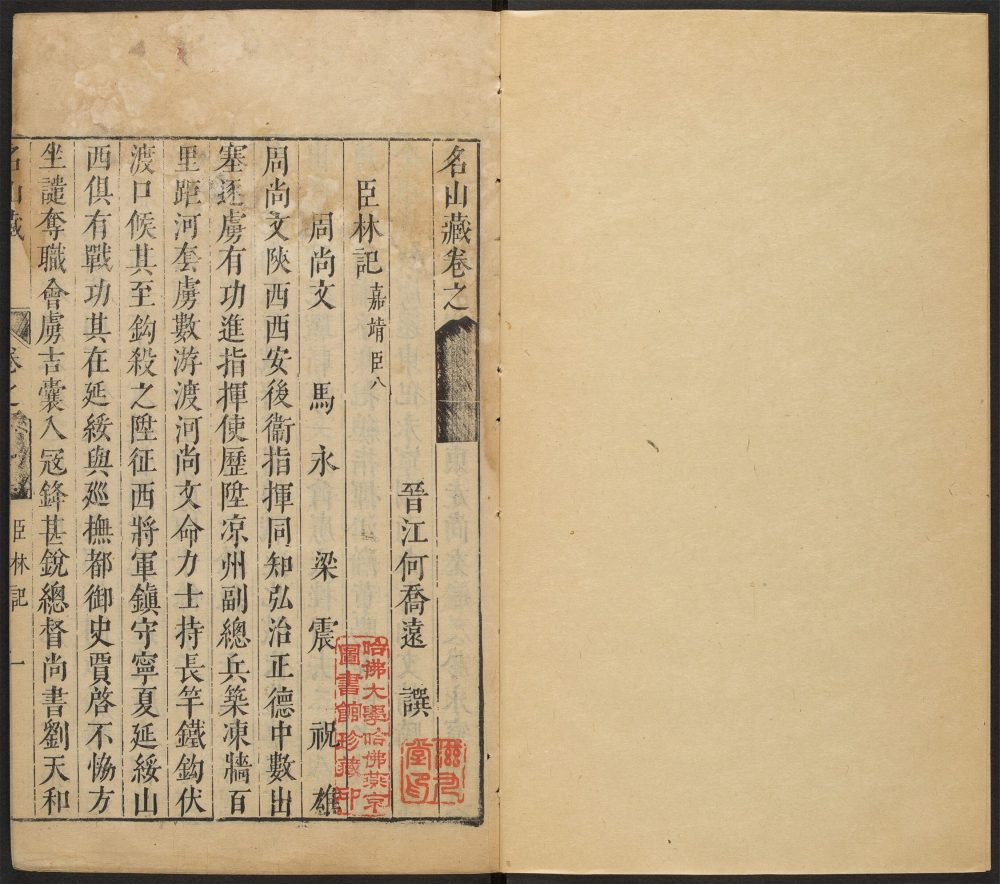 名山藏卷之
晉江何喬遠 譔
臣林記 嘉靖臣八
周尚文 馬永 梁震 祝雄
周尚文陝西西安後衞指揮同知弘治正德中數出
塞逐虜有功進指揮使歷陞凉州副總兵築凍牆百
里距河套虜數游渡河尚文命力士持長竿鐵鈎伏
渡口候其至鈎殺之陞征西將軍鎮守寧夏延綏山
西俱有戰功其在延綏與廵撫都御史賈啓不恊方
坐譴奪職會虜吉囊入冦鋒甚銳總督尚書劉天和
名山藏 卷之 臣林記 一
哈佛大學哈佛燕京
圖書館珍藏印